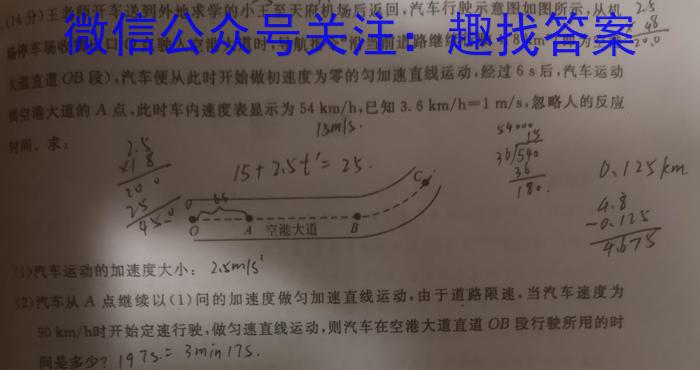 (14分)王老师开车送到外地求学的小王至天府机场后返回,汽车行驶示意图如图所示,从机
微信公众号关注：趣找答案
大道直道OB段),汽车便从此时开始做初速度为零的匀加速直线运动,经过6 s后,汽车运动
到空港大道的A点,此时车内速度表显示为54 km/h,已知3.6 km/h=1 m/s,忽略人的反应
时间。求:
15m/s.
15+2.5t'=25.
2.5
×18
200
25
450
54000
15
36/540
36
180.
0.125km.
4.8
-0.125
4.675
2.5
48
20.0
6s
O
A
空港大道
B
C
(1)汽车运动的加速度大小; 2.5m/s²
(2)汽车从A点继续以(1)问的加速度做匀加速直线运动,由于道路限速,当汽车速度为
90 km/h时开始定速行驶,做匀速直线运动,则汽车在空港大道直道OB段行驶所用的时
间是多少? 197s.=3min17s.